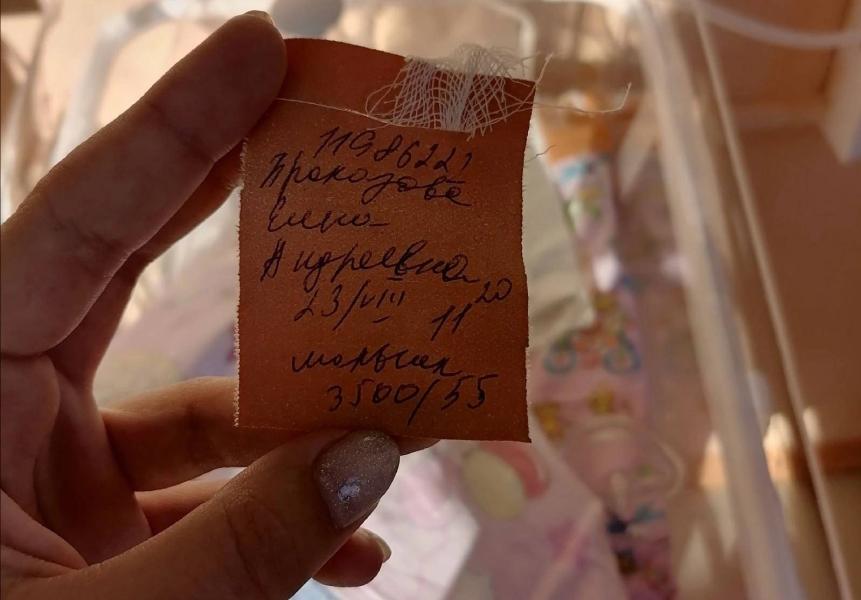 11986221
Проказова
Елена
Андреевна
23/VIII 11 20
мальчик
3500/55